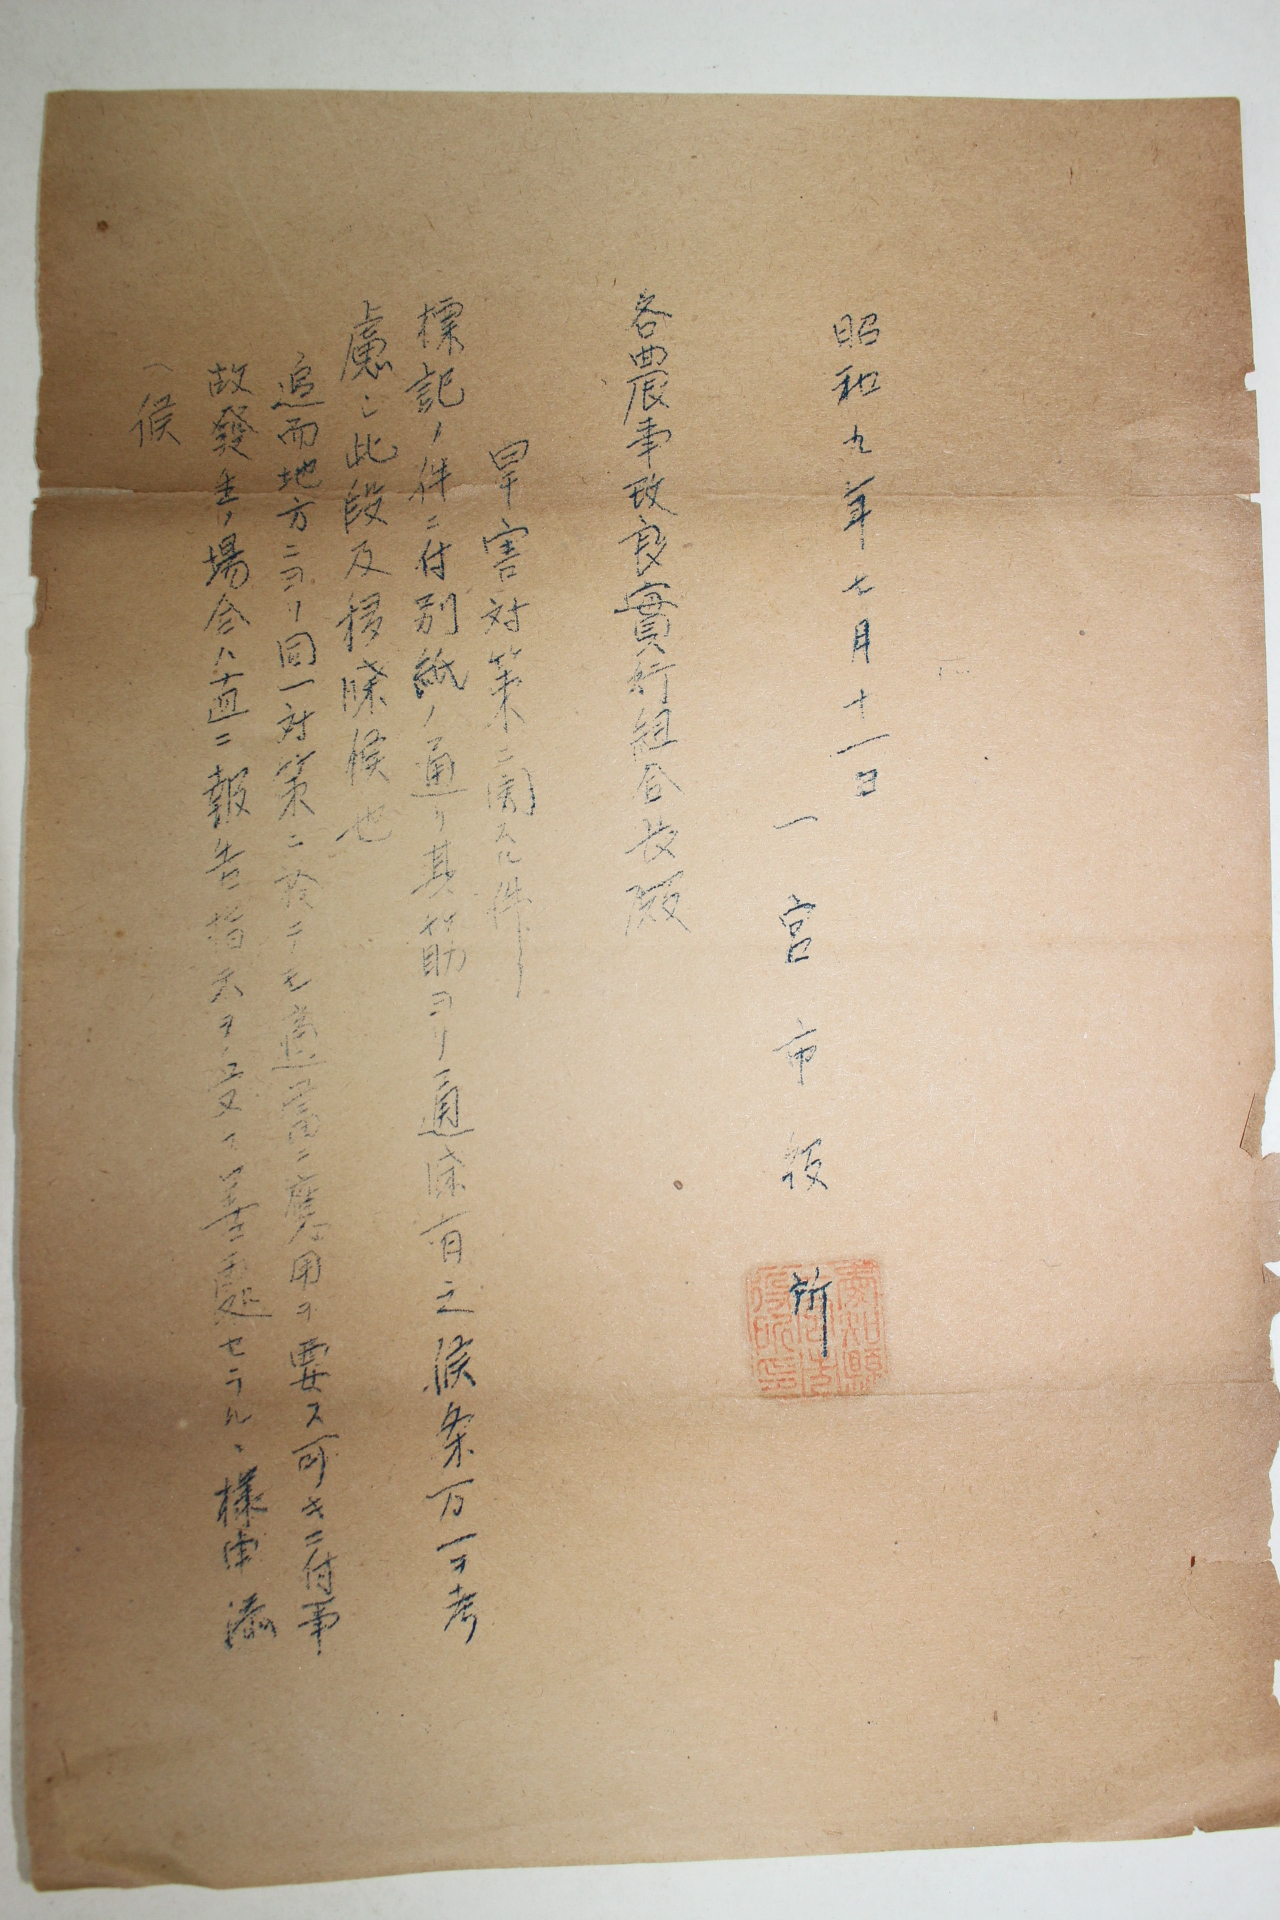 昭和九年七月十一日
一宮市役所
愛知縣一宮市役所印
各農事改良實行組合長殿
旱害対策ニ関スル件
標記ノ件ニ付別紙ノ通リ其筋ヨリ通牒有之候条万一ヲ考
慮シ此段及移牒候也
追而地方ニヨリ同一対策ニ於テモ適當ニ應用ヲ要ス可キニ付事
故發生ノ場合ハ直ニ報告指示ヲ受ケ善處セラルヽ様申添
ヘ候